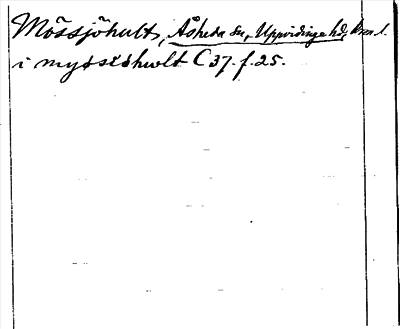 Mössjöhult, Åsheda sn, Uppvidinge hd, Kron. l.
i myssiöhwlt C 37. f. 25.